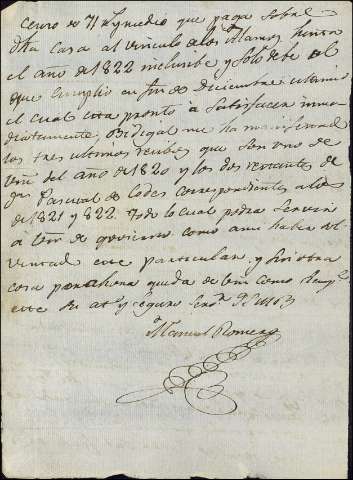 Censo de 71 y medio que paga sobre
dha casa al vinculo de los Llanos hasta
el año de 1822 inclusibe y solo debe el
que cumplio en fin de Diciembre ultimo
el cual esta pronto a satisfacer inme
diatamente. Bidegal me ha manifestado
los tres ultimos recibos que son uno de
del año de 1820 y los dos restantes de
Dn Pascual de Lodes correspondientes a los
de 1821 y 822. Todo lo cual podra servir
a de govierno como asi haba el
este particular, y sin otra
cosa por ahora queda de como siempre
este su at.º y seguro
Manuel Romero